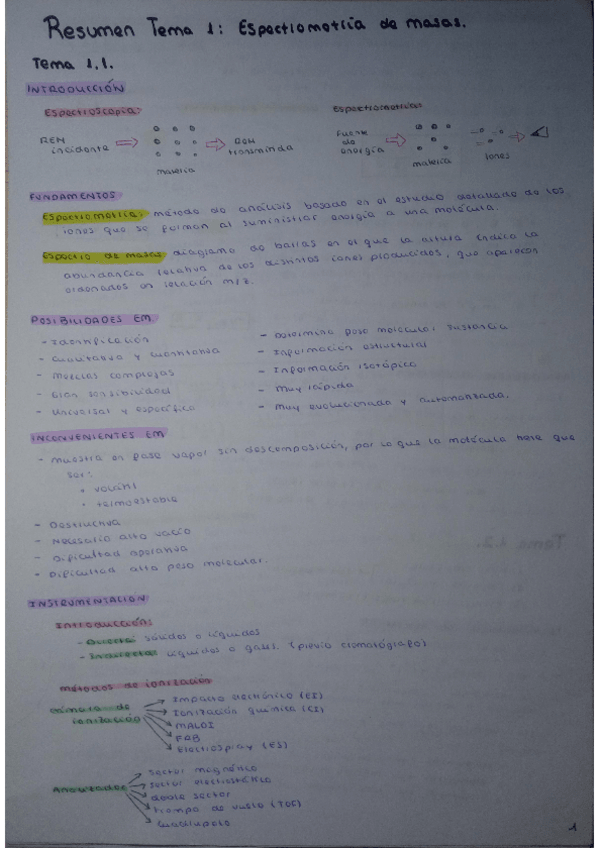 Resumen Tema 1: Espectrometría de masas.
Tema 1.1.
INTRODUCCIÓN
Espectroscopía:
REM incidente
materia
REM transmitida
Espectrometría:
Fuente de energía
materia
iones
FUNDAMENTOS
Espectrometría: método de análisis basado en el estudio detallado de los
iones que se forman al suministrar energía a una molécula.
Espectro de masas: diagrama de barras en el que la altura indica la
abundancia relativa de los distintos iones producidos, que aparecen
ordenados en relación m/z.
POSIBILIDADES EM
- Identificación
- Cualitativa y cuantitativa
- Mezclas complejas
- Gran sensibilidad
- Universal y específica
- Determina peso molecular sustancia
- Información estructural
- Información isotópica
- Muy rápida
- Muy evolucionada y automatizada.
INCONVENIENTES EM
- Muestra en fase vapor sin descomposición, por lo que la molécula tiene que
ser:
• volátil
• termoestable
- Destructiva
- Necesario alto vacío
- Dificultad operativa
- Dificultad alto peso molecular.
INSTRUMENTACIÓN
Introducción:
- Directa: sólidos o líquidos
- Indirecta: líquidos o gases. (previo cromatógrafo)
métodos de ionización
cámara de ionización
Impacto electrónico (EI)
Ionización química (CI)
MALDI
FAB
Electrospray (ES)
Analizador
Sector magnético
Sector electrostático
doble sector
tiempo de vuelo (TOF)
Cuadrupolo
1
Tema 1.2.